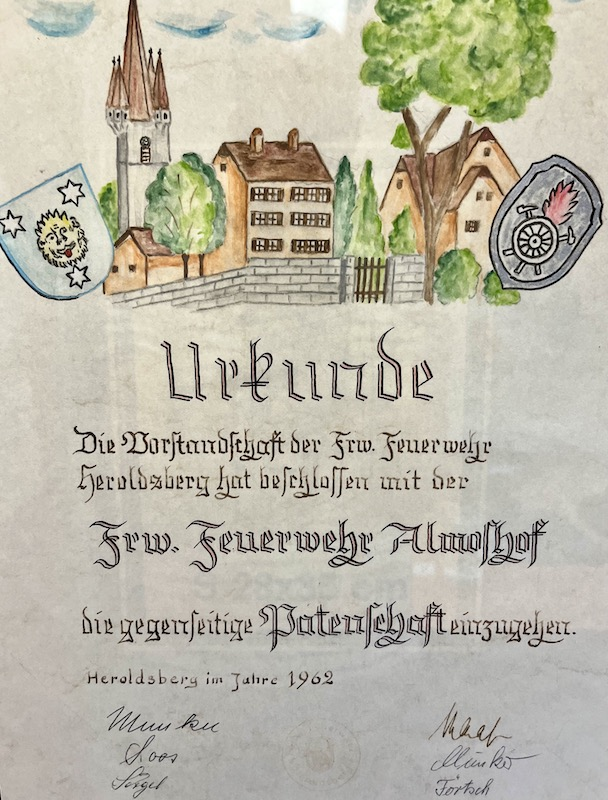 Urkunde
Die Vorstandschaft der Frw. Feuerwehr
Heroldsberg hat beschlossen mit der
Frw. Feuerwehr Almoshof
die gegenseitige Patenschaft einzugehen.
Heroldsberg im Jahre 1962
Loos
Förtsch